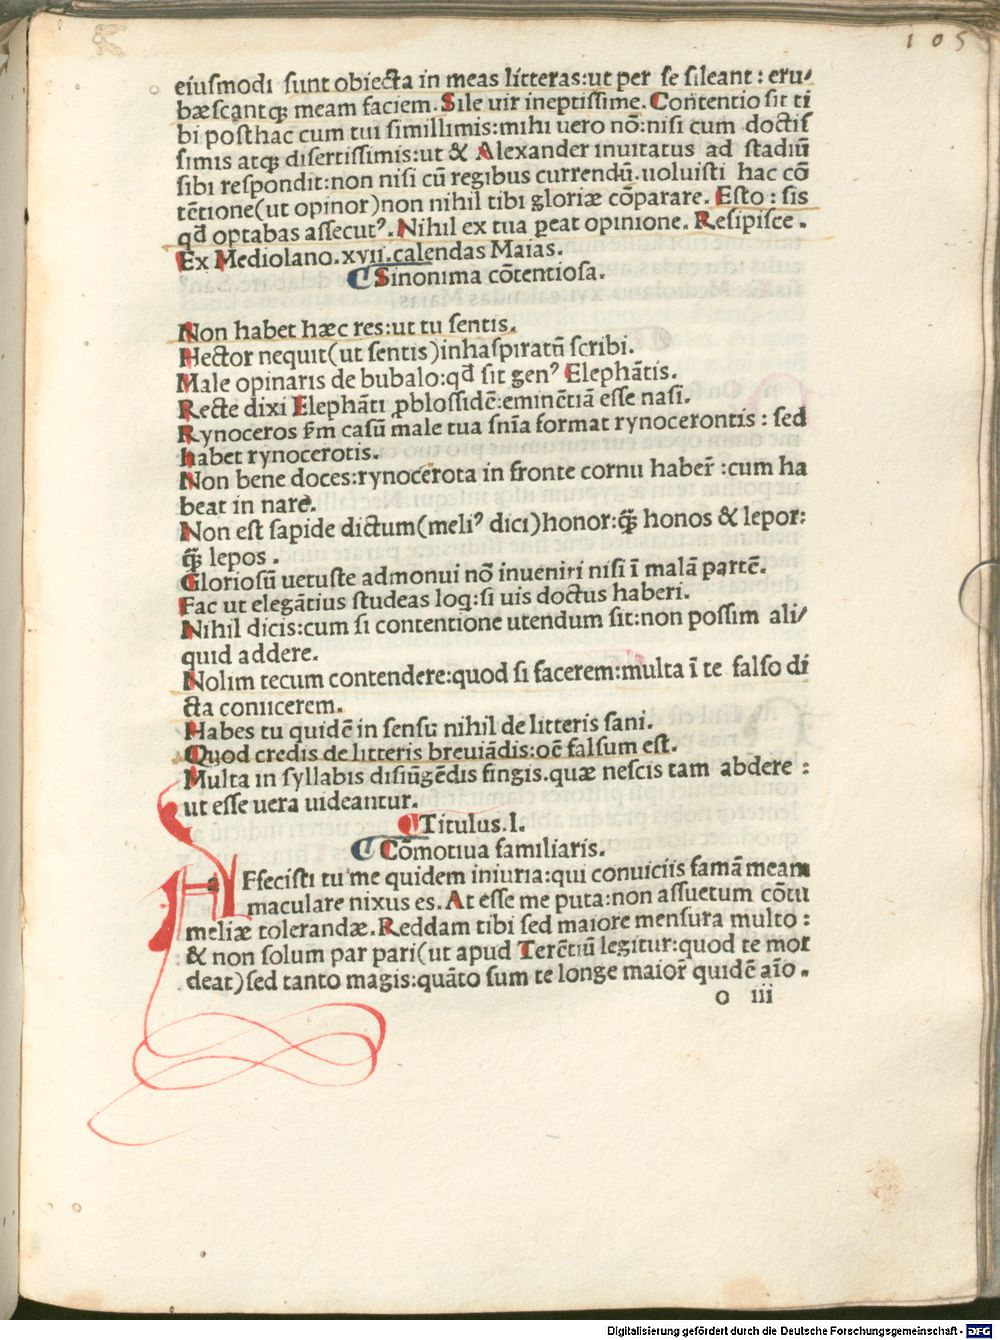 105
eiusmodi sunt obiecta in meas litteras:ut per se sileant: eru/
bæscantqꝫ meam faciem. Sile uir ineptissime. Contentio sit ti
bi posthac cum tui simillimis:mihi uero nō:nisi cum doctis
simis atqꝫ disertissimis:ut & Alexander inuitatus ad stadiū
sibi respondit:non nisi cū regibus currendū.uoluisti hac cō
tētione(ut opinor)non nihil tibi gloriæ cōparare. Esto: sis
qđ optabas assecutꝰ. Nihil ex tua ꝑeat opinione. Resipisce.
Ex Mediolano.xvii.calendas Maias.
¶ Sinonima cōtentiosa.
Non habet hæc res:ut tu sentis.
Hector nequit(ut sentis)inhaspiratū scribi.
Male opinaris de bubalo:qđ sit genꝰ Elephātis.
Recte dixi Elephāti ꝓblossidē:eminētiā esse nasi.
Rynoceros ẜm casū male tua snīa format rynocerontis: sed
habet rynocerotis.
Non bene doces:rynocerota in fronte cornu haber̄ :cum ha
beat in nare.
Non est sapide dictum(meliꝰ dici)honor:qꝫ̄ honos & lepor:
qꝫ̄ lepos.
Gloriosū uetuste admonui nō inueniri nisi ī malā partē.
Fac ut elegātius studeas loq:si uis doctus haberi.
Nihil dicis:cum si contentione utendum sit:non possim ali/
quid addere.
Nolim tecum contendere:quod si facerem:multa ī te falso di
cta coniicerem.
Habes tu quidē in sensu nihil de litteris sani.
Quod credis de litteris breuiādis:oē falsum est.
Multa in syllabis disiūgēdis fingis.quæ nescis tam abdere:
ut esse uera uideantur.
¶ Titulus.l.
¶ Cōmotiua familiaris.
AFfecisti tu me quidem iniuria:qui conuiciis famā meam
maculare nixus es. At esse me puta:non assuetum cōtu
meliæ tolerandæ. Reddam tibi sed maiore mensura multo:
& non solum par pari(ut apud Terētiū legitur:quod te mor
deat)sed tanto magis:quāto sum te longe maior̄ quidē aīo.
o iii
Digitalisierung gefördert durch die Deutsche Forschungsgemeinschaft - DFG